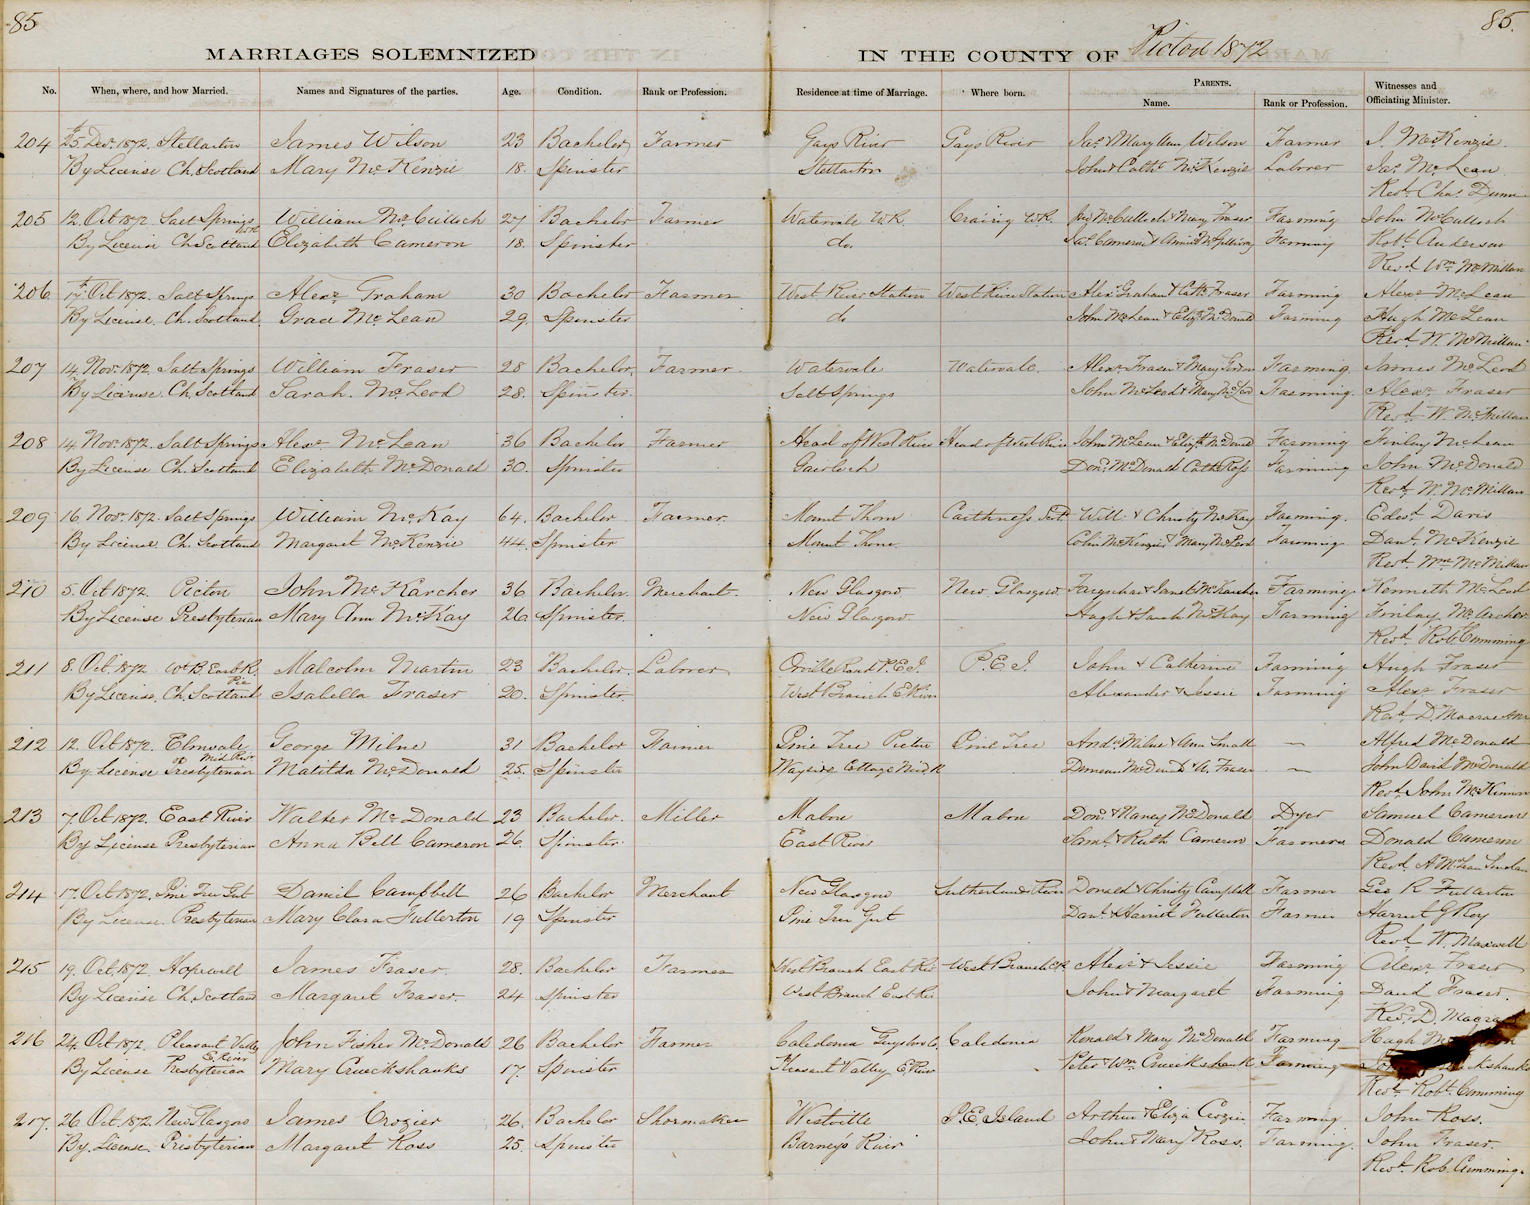 85 85.
MARRIAGES SOLEMNIZED IN THE COUNTY OF Pictou 1872
No. When, where, and how Married. Names and Signatures of the parties. Age. Condition. Rank or Profession. Residence at time of Marriage. Where born. PARENTS. Name. Rank or Profession. Witnesses and Officiating Minister.
204 25 Decr. 1872. Stellarton James Wilson 23 Bachelor Farmer Gays River Gays River Jas & Mary Ann Wilson Farmer J. McKenzie
By License Ch. Scotland Mary McKenzie 18. Spinster Stellarton John & Cathe McKenzie Laborer Jas. McLean
Revd. Chas Dunn
205 12. Oct 1872 Salt Springs William McCulloch 27 Bachelor Farmer Watervale W.R. W.R. Jas McCulloch & Mary Fraser Farming John McCulloch
By License Ch Scotland Elizabeth Cameron 18. Spinster do. Jas. Cameron & Farming Robt Anderson
Revd Wm McMillan
206 17. Oct 1872. Salt Springs Alexr Graham 30 Bachelor Farmer West River Station West River Station Alexr Graham & Cathe Fraser Farming Alexr McLean
By License. Ch. Scotland. Grace McLean 29. Spinster do John McLean & Eliza McDonald Farming Hugh McLean
Revd W. McMillan
207 14. Nov. 1872 Salt Springs William Fraser 28 Bachelor. Farmer. Watervale Watervale. Alexr Fraser & Mary Farming. James McLeod
By License Ch. Scotland Sarah. McLeod 28. Spinster. Salt Springs John McLeod & Mary McLeod Farming. Alexr Fraser
Revd W. McMillan
208 14 Nov. 1872. Salt Springs Alexr McLean 36 Bachelor Farmer Head of West River Head of West River John McLean & Elizth McDonald Farming Finlay McLean
By License Ch. Scotland Elizabeth McDonald 30. Spinster Gairloch Don. McDonald Cathe Ross Farming John McDonald
Revd. W. McMillan
209 16 Nov. 1872. Salt Springs William McKay 64. Bachelor Farmer. Mount Thom Caithness Scot. Will. & Christy McKay Farming. Edwd Davis
By License Ch. Scotland Margaret McKenzie 44. Spinster Mount Thom. Colin McKenzie & Mary McLeod Farming Danl. McKenzie
Revd. Wm McMillan
210 5. Oct 1872. Pictou John McKarcher 36 Bachelor. Merchant. New Glasgow New Glasgow. Farquhar & Janet McKarcher Farming. Kenneth McLeod
By License Presbyterian Mary Ann McKay 26 Spinster. New Glasgow. Hugh & Sarah McKay Farming Finlay McArcher
Revd Rob. Cumming
211 8. Oct 1872. Wt B. East R. Pic Malcolm Martin 23 Bachelor. Laborer Orville Road P.E.I. P.E.I. John & Catherine Farming Hugh Fraser
By License. Ch. Scotland Isabella Fraser 20. Spinster. West Branch E River Alexander & Jessie Farming Alexr Fraser
Revd D. Macrae
212 12. Oct 1872. Elmvale George Milne 31 Bachelor Farmer Pine Tree Pictou Pine Tree Andw Milne & Ann Small — Alfred McDonald
By License Mid. Rivr Presbyterian Matilda McDonald 25. Spinster Wayside Cottage Mid. R Duncan McDonald & A. Fraser — John David McDonald
Revd John McKinnon
213 7 Oct 1872. East River Walter McDonald 23 Bachelor. Miller Mabou Mabou Don. & Nancy McDonald Dyer Samuel Cameron
By License Presbyterian Anna Bell Cameron 26. Spinster. East River Saml. & Ruth Cameron Farmer Donald Cameron
Revd A McLean Sinclair
214 17. Oct 1872. Pine Tree Gut Daniel Campbell 26 Bachelor Merchant New Glasgow Sutherlands River Donald & Christy Campbell Farmer Geo R Fullerton
By License. Presbyterian Mary Clara Fullerton 19 Spinster Pine Tree Gut Danl. & Harriet Fullerton Farmer Harriet G Roy
Revd W. Maxwell
215 19. Oct. 1872. Hopewell James Fraser. 28. Bachelor Farmer West Branch East Rivr West Branch E.R. Alexr & Jessie Farming Alexr Fraser
By License Ch. Scotland Margaret Fraser. 24 Spinster West Branch East Rivr John & Margaret Farming David Fraser.
Revd. D. Macrae
216 24. Oct 1872. Pleasant Valley E. River John Fisher McDonald 26 Bachelor Farmer Caledonia Guysboro Co. Caledonia Ronald & Mary McDonald Farming Hugh
By License Presbyterian Mary Cruickshanks 17. Spinster Pleasant Valley E. River Peter & Wm Cruickshank Farming
Revd. Robt. Cumming
217. 26 Oct. 1872. New Glasgow James Crozier 26. Bachelor Shoemaker Westville P.E. Island Arthur & Eliza Crozier Farming John Ross.
By License. Presbyterian Margaret Ross 25. Spinster Barneys River John & Mary Ross. Farming. John Fraser.
Revd. Rob. Cumming.